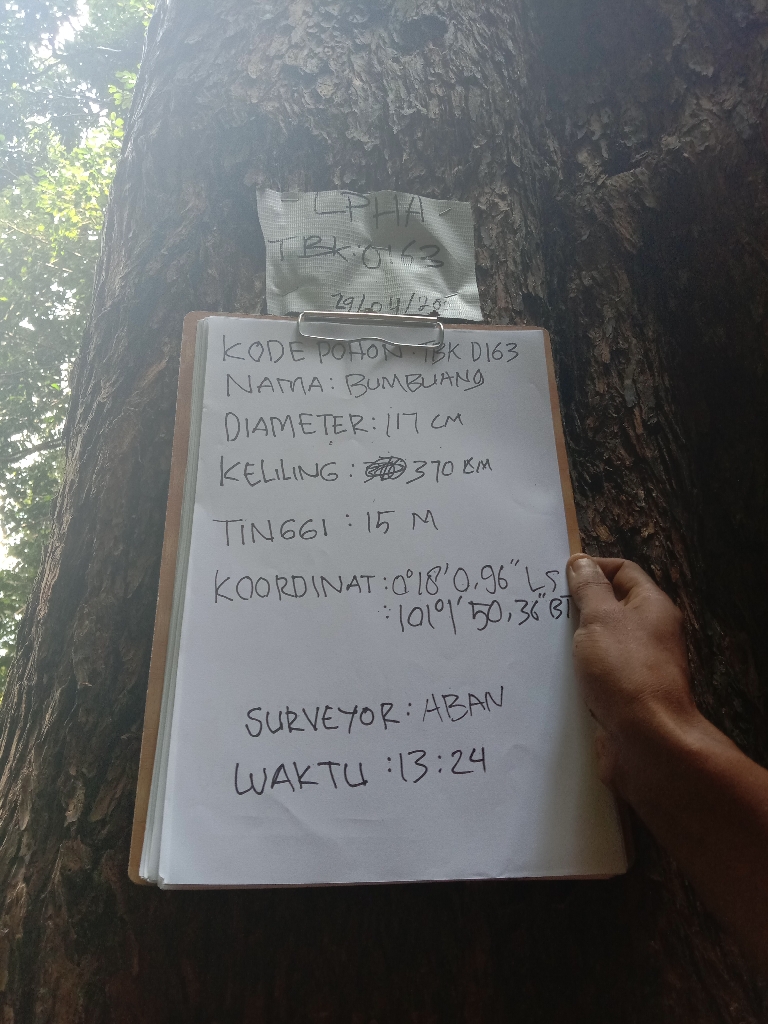 LPHA
TBK:0163
29/04/25
KODE POHON: TBK 0163
NAMA: BUMBUANG
DIAMETER: 117 CM
KELILING: 370 CM
TINGGI : 15 M
KOORDINAT: 0°18'0,96" LS
: 101°1'50,36" BT
SURVEYOR: ABAN
WAKTU : 13:24